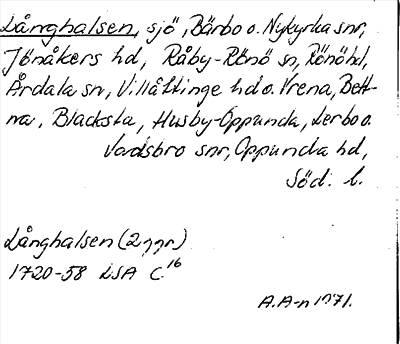 Långhalsen, sjö, Bärbo o. Nykyrka snr,
Jönåkers hd, Råby-Rönö sn, Rönö hd,
Årdala sn, Villåttinge hd o. Vrena, Bett-
na, Blacksta, Husby-Oppunda, Lerbo o.
Vadsbro snr, Oppunda hd,
Söd. l.
Långhalsen (2 ggr)
1720-58 LSA C.16
A.A-n 1971.